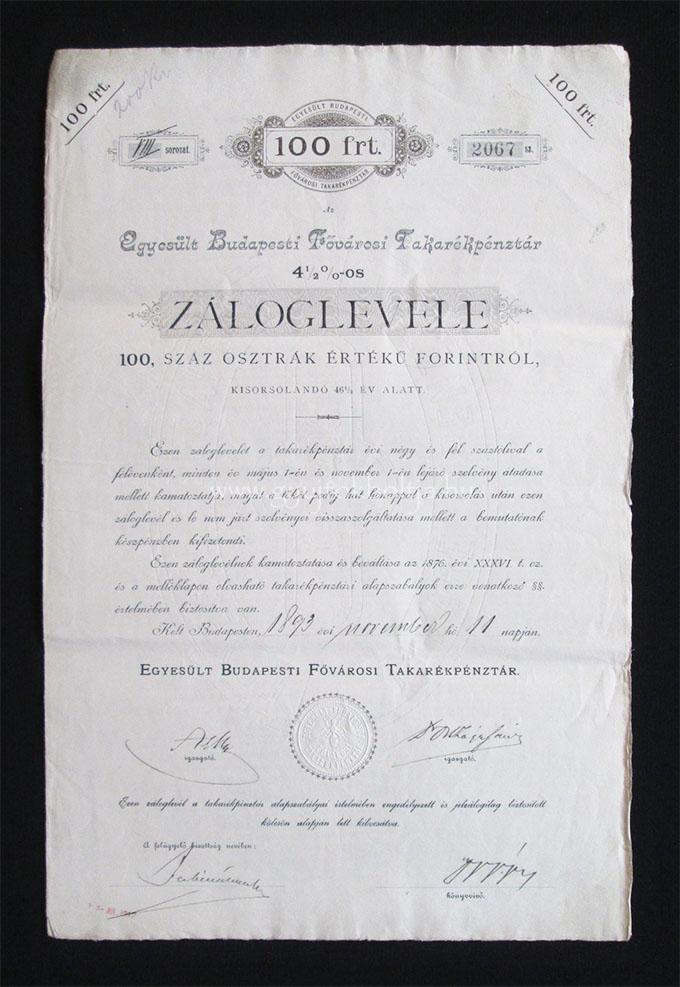 100 frt.
200 Kr
100 frt.
EGYESÜLT BUDAPESTI
VIII sorozat.
100 frt.
2067 sz.
FŐVÁROSI TAKARÉKPÉNZTÁR
Az
Egyesült Budapesti Fővárosi Takarékpénztár
4 1/2 %-os
ZÁLOGLEVELE
100, SZÁZ OSZTRÁK ÉRTÉKŰ FORINTRÓL,
KISORSOLANDÓ 46½ ÉV ALATT.
Ezen záloglevelet a takarékpénztár évi négy és fél száztólival a
félévenként, minden év május 1-én és november 1-én lejáró szelvény átadása
mellett kamatoztatja, magát a tőkét pedig hat hónappal a kisorsolás után ezen
záloglevél és le nem járt szelvényei visszaszolgáltatása mellett a bemutatónak
készpénzben kifizetendi.
Ezen záloglevélnek kamatoztatása és beváltása az 1876. évi XXXVI. t. cz.
és a melléklapon olvasható takarékpénztári alapszabályok erre vonatkozó §§.
értelmében biztositva van.
Kelt Budapesten, 1893 évi november hó 11 napján.
EGYESÜLT BUDAPESTI FŐVÁROSI TAKARÉKPÉNZTÁR.
igazgató.
igazgató.
Ezen záloglevél a takarékpénztár alapszabályai értelmében engedélyezett és jelzálogilag biztositott
kölcsön alapján lett kibocsátva.
A felügyelő bizottság nevében:
könyvvivő.